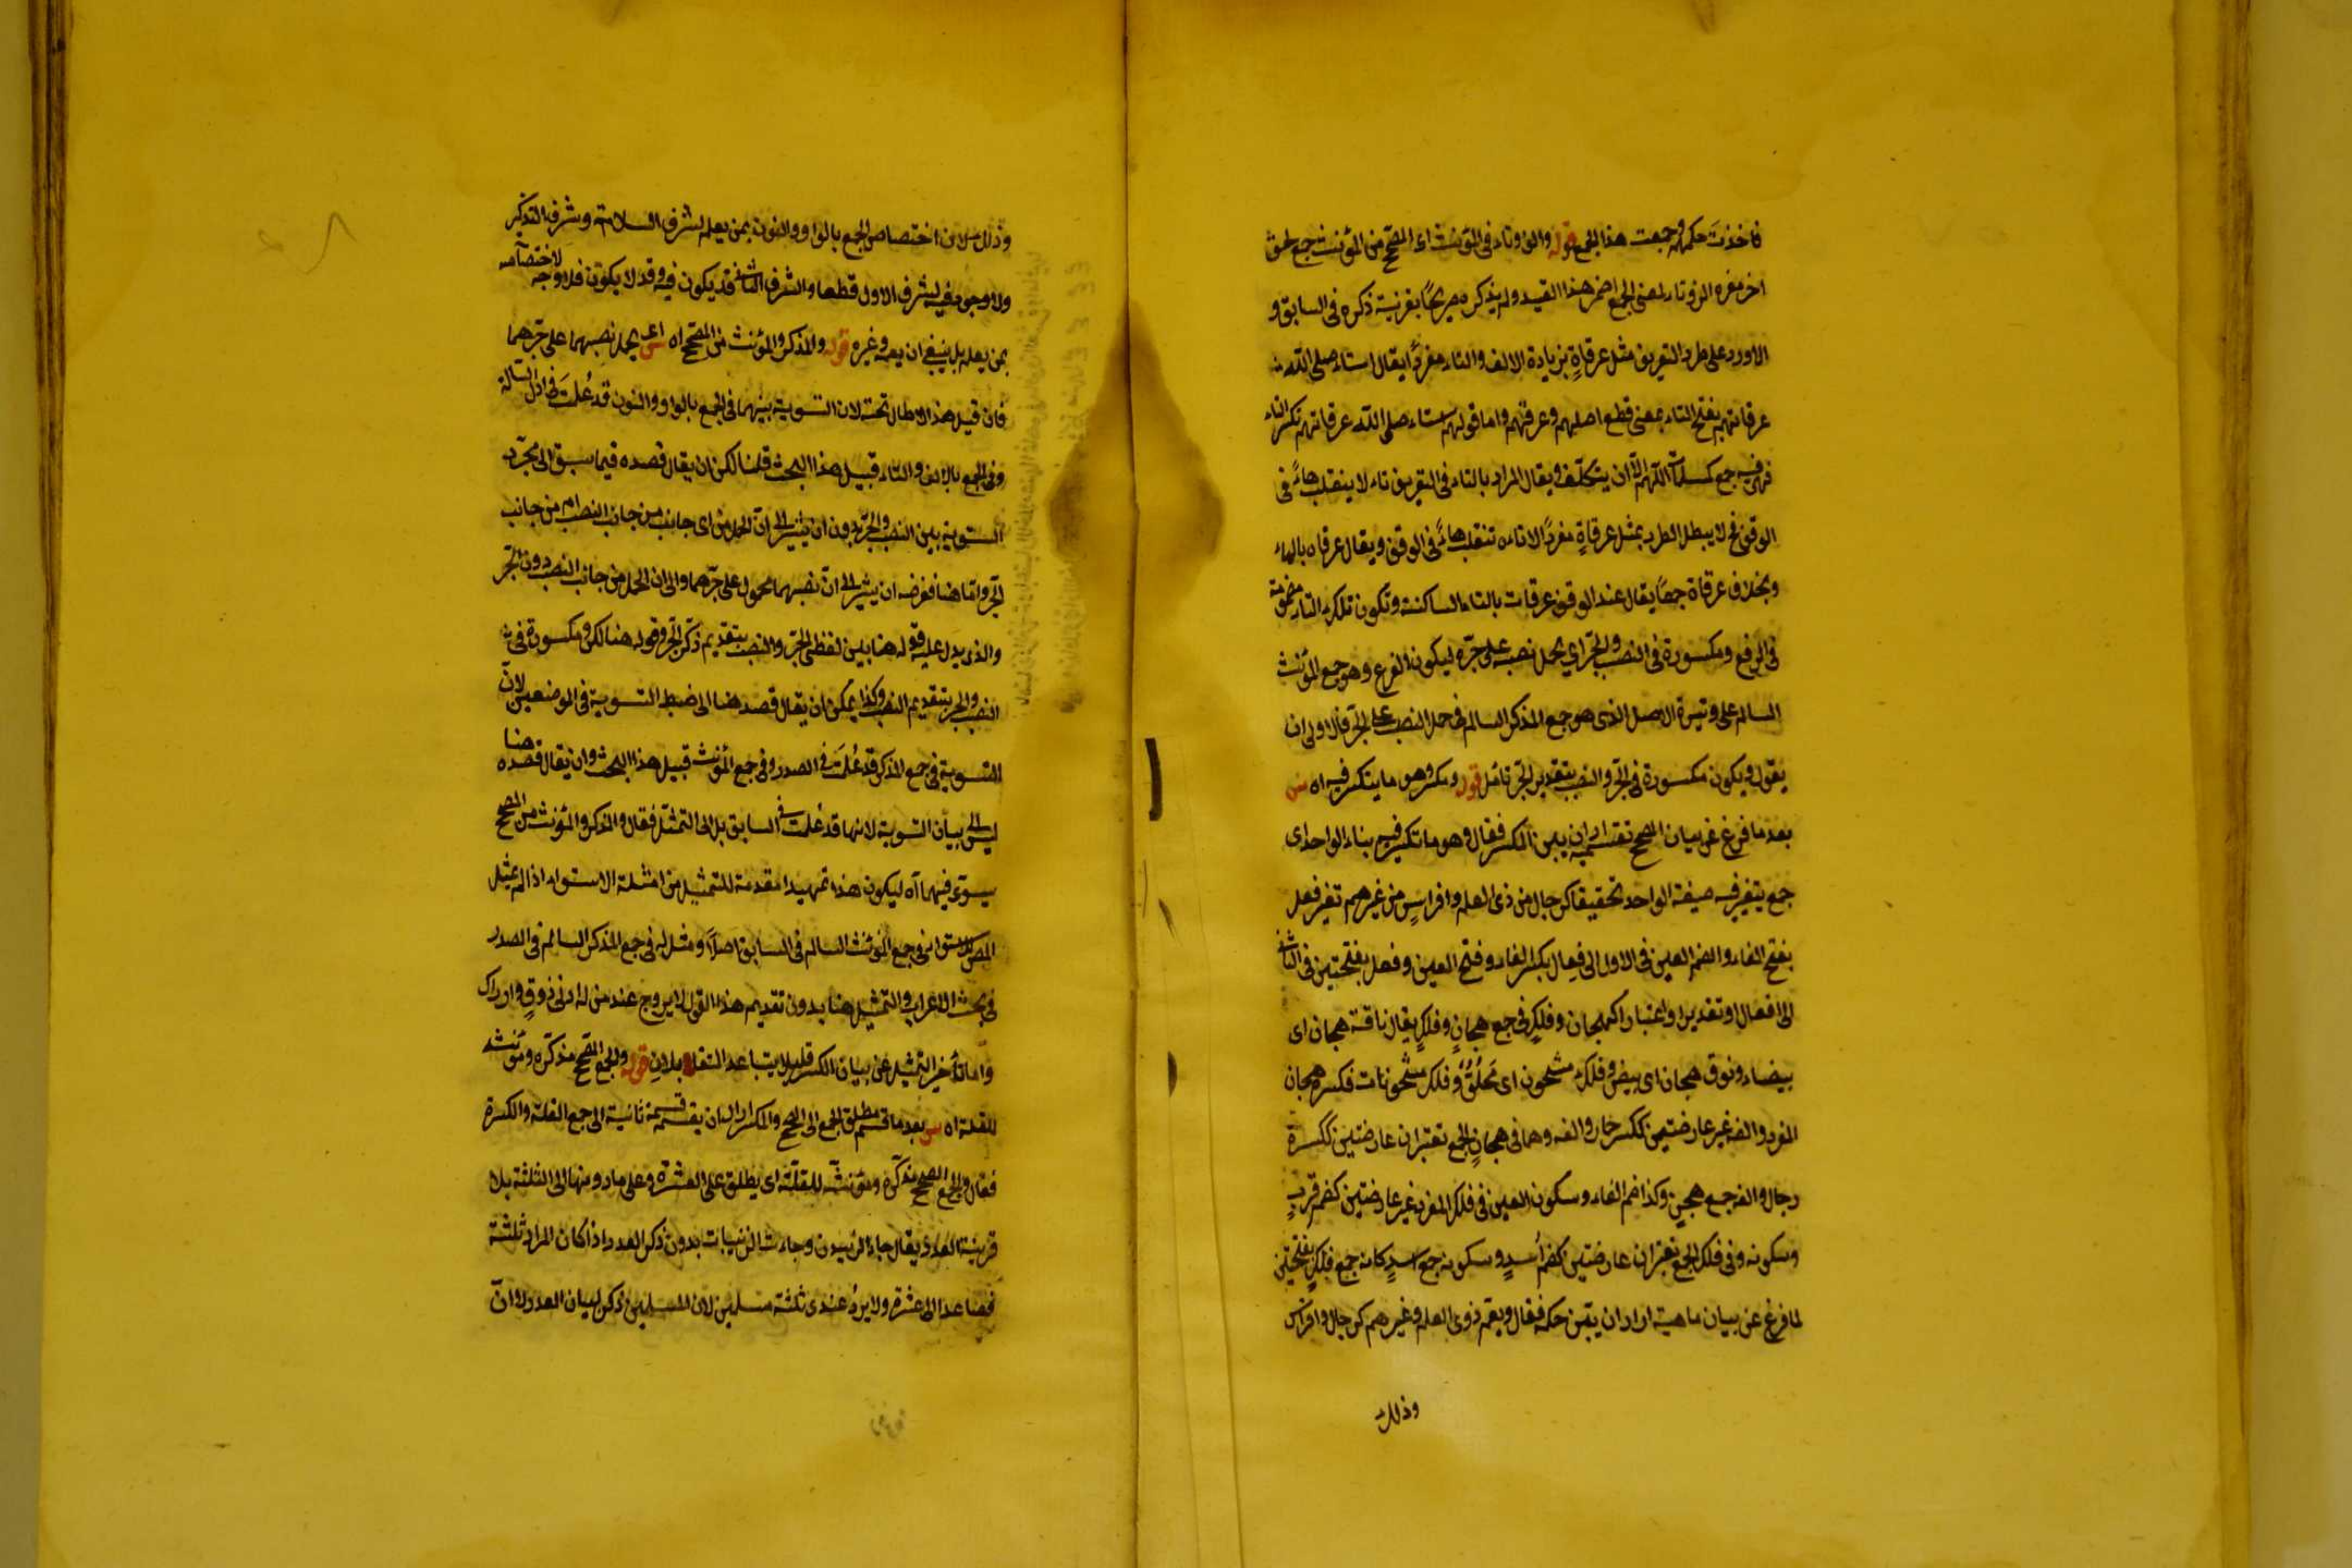 فاخذت حكمه وجمعت هذا الجمع قوله والف وتاء في المؤنث اى المصحح من المؤنث جمع لحق
اخر مفرده الف وتاء لمعنى الجمع اضمر هذا القيد ولم يذكره صريحًا بقرينة ذكره في السابق و
الا ورد على طرد التعريف مثل عرقاةٍ بزيادة الالف والتاء مفردًا يقال استاءصل الله
عرقاتهم بفتح التاء بمعنى قطع اصلهم وعرقهم واما قولهم استاءصل الله عرقاتهم بكسر التاء
فهى فيه جمع كمسلمات اللهم الّا ان يتكلّف ويقال المراد بالتاء في التعريف تاء لا ينقلب هاءً في
الوقف فح لا يبطل الطرد بمثل عرقاةٍ مفردًا لان تاءه تنقلب هاءً في الوقف ويقال عرقاه بالهاء
وبخلاف عرقاة جمعًا يقال عند الوقف عرقات بالتاء الساكنة وتكون تلك التاء مضمومة
في الرفع ومكسورة في النصب والجرّ اي يحمل نصبه على جرّه ليكون الفرع وهو جمع المؤنث
السالم على وتيرة الاصل الذى هو جمع المذكر السالم في حمل النصب على الجرّ فالاولى ان
يقول ويكون مكسورة في الجرّ والنصب بتقديم الجرّ تامّل قوله ومكسر وهو ما يتكسر فيه اه ش
بعد ما فرغ عن بيان المصحح بقسميه اراد ان يبين المكسر فقال وهو ما تكسر فيه بناء الواحد اى
جمع يتغير فيه صيغة الواحد تحقيقا كرجال من ذى العلم وافراسٍ من غيرهم تغير فعل
بفتح الفاء والضم العين في الاول الى فِعال بكسر الفاء وفتح العين وفعل بفتحتين في الثانى
الى افعال او تقديرا واعتبارا كهجان وفلكٍ في جمع هجانٍ وفلكٍ يقال ناقة هجان اى
بيضاء ونوق هجان اى بيض وفلك مشحون اى مملُوٌّ وفلك مشحونات فكسرة هجان
المفرد والفه غير عارضتين ككسر حمار والفه وهما في هجانٍ الجمع تعتبران عارضتين ككسرة
رجال والفه جمع هجينٍ وكذا ضم الفاء وسكون العين في فلك المفرد غير عارضتين كضم قربٍ
وسكونه وفى فلك الجمع تعتبران عارضتين كضم أُسدٍ وسكونه جمع اسدٍ كانه جمع فلكٍ بفتحتين
لما فرغ عن بيان ماهيته اراد ان يبين حكمه فقال ويعم ذوى العلم وغيرهم كرجال وافراس
وذلك
وذلك لان اختصاص الجمع بالواو والنون بمن يعلم لشرف السلامة وشرف التذكير
ولا وجود فيه لشرف الاول قطعا والشرف الثانى قد يكون فيه وقد لا يكون فلا وجه لاختصاصه
بمن يعلم بل ينبغي ان يعمه وغيره قوله والمذكر والمؤنث من المصحح اه ش اى يحمل نصبهما على جرّهما
فان قيل هذا لا طائل تحته لان التسوية بينهما في الجمع بالواو والنون قد عُلمت في اول الرسالة
وفى الجمع بالالف والتاء قبيل هذا البحث قلنا لكن ان يقال قصده فيما سبق الى مجرّد
التسوية بين النصب والجرّ بدون ان يشير الى انّ الحمل من اى جانب من جانب النصب ام من جانب
الجرّ وامّا هنا فغرضه ان يشير الى انّ نصبهما محمول على جرّهما والى ان الحمل من جانب النصب دون الجرّ
والذى يدل عليه قوله هنا بين لفظى الجرّ والنصب بتقديم ذكر الجرّ وقوله هنالك ومكسورة في
النصب والجر بتقديم النصب وكذا يمكن ان يقال قصد هنا الى ضبط التسوية في الموضعين لانّ
التسوية في جمع المذكر قد عُلمت في الصدر وفى جمع المؤنث قبيل هذا البحث وان يقال قصده هنا
ليس الى بيان التسوية لانها قد عُلمت في السابق بل الى التمثيل فقال والمذكر والمؤنث من المصحح
يسوّى فيهما اه ليكون هذا تمهيدا مقدمة للتمثيل من امثلة الاستواء اذا لم يمثل
المص للاستواء في جمع المؤنث السالم في السابق اصلًا ومثل له في جمع المذكر السالم في الصدر
في بحث الاعراب والتمثيل هنا بدون تقديم هذا القول لا يروج عند من له ادنى ذوقٍ وادراك
وامّا تأخير التمثيل عن بيان المكسر فليلا يتباعد التقابلان قوله والجمع المصحح مذكره ومؤنثه
للقلة اه ش بعد ما قسم مطلق الجمع الى المصحح والمكسر اراد ان يقسمه قسمة ثانية الى جمع القلة والكثرة
فقال والجمع المصحح مذكّره ومؤنثه للقلّة اى يطلق على العشرة وعلى ما دونها الى الثلثة بلا
قرينة العدد يقال جاء الزيدون وجاءت الزينبات بدون ذكر العدد اذا كان المراد ثلثة
فصاعدا الى عشرة ولا يرد عندى ثلثة مسلمين لان المسلمين ذكر لبيان العدد لا انّ